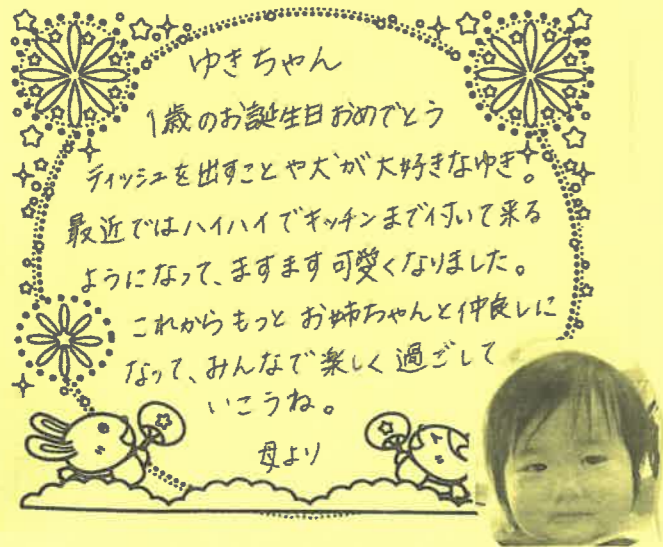 ゆきちゃん
1歳のお誕生日おめでとう
ティッシュを出すことや犬が大好きなゆき。
最近ではハイハイでキッチンまで付いて来る
ようになって、ますます可愛くなりました。
これからもっとお姉ちゃんと仲良しに
なって、みんなで楽しく過ごして
いこうね。
母より